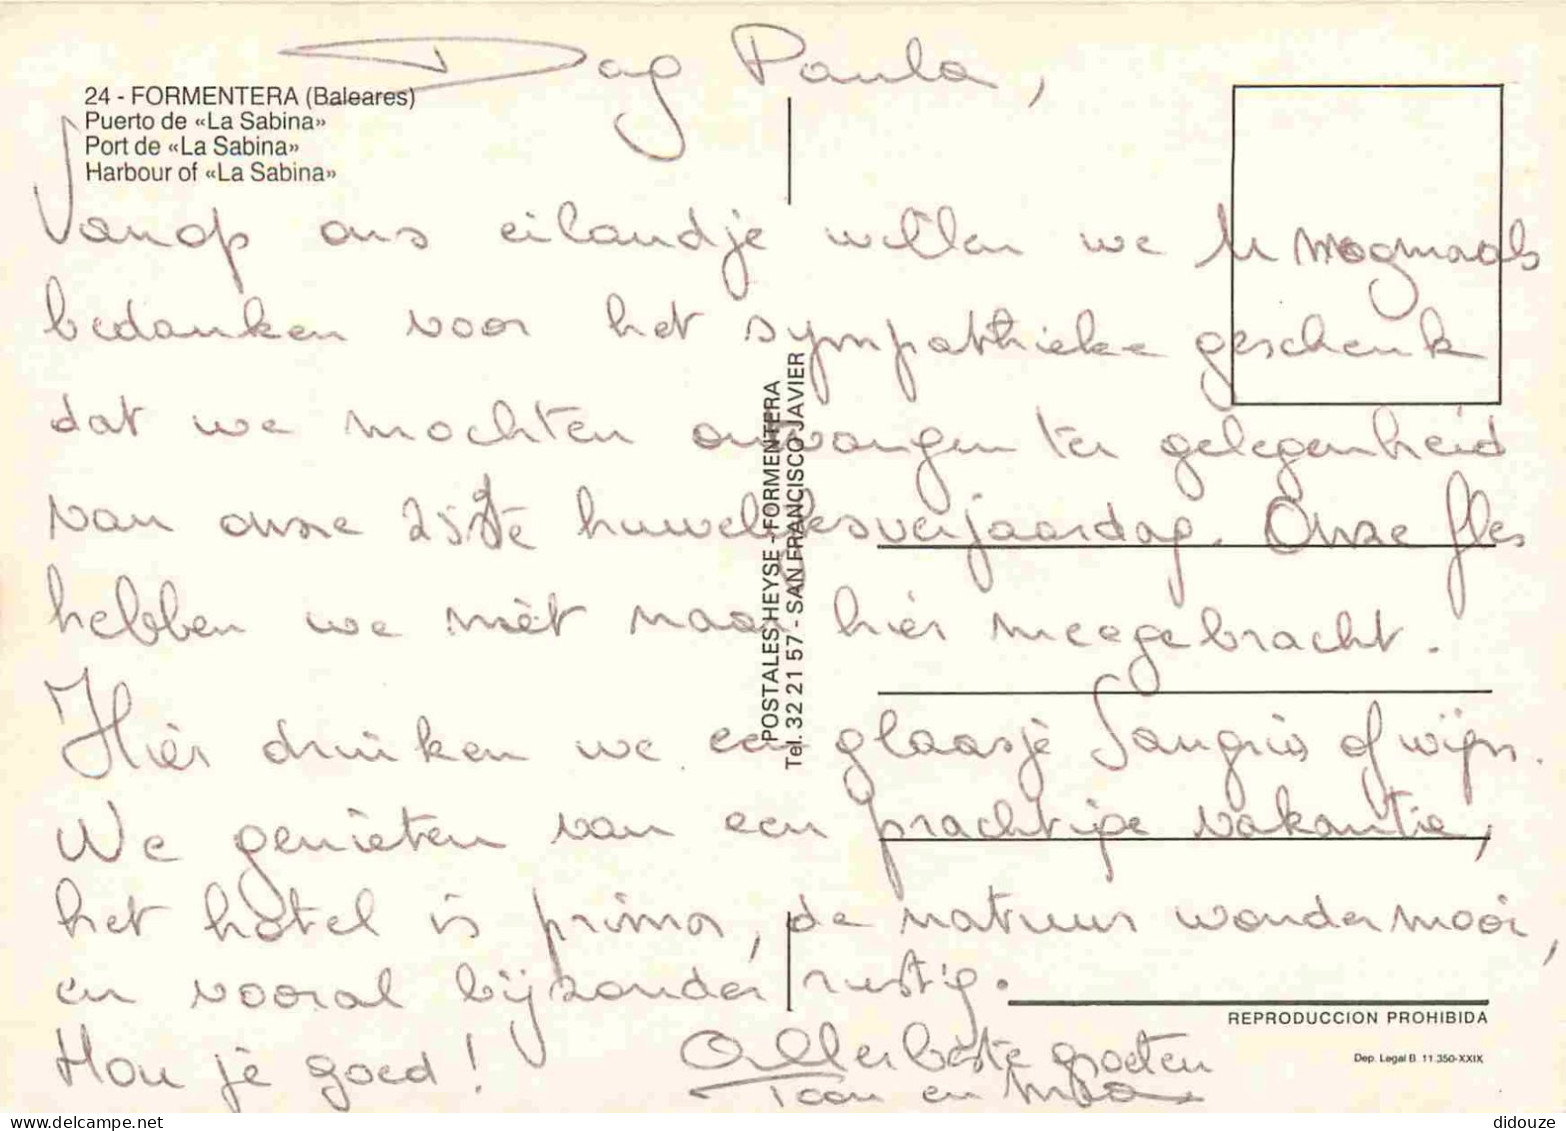 Dag Paula,
24 - FORMENTERA (Baleares)
Puerto de «La Sabina»
Port de «La Sabina»
Harbour of «La Sabina»
Vanop ons eilandje willen we U nogmaals
bedanken voor het sympathieke geschenk
dat we mochten ontvangen ter gelegenheid
van onze 25ste huwelijksverjaardag. Onze fles
hebben we niet naar hier meegebracht.
Hier drinken we een glaasje Sangria of wijn.
We genieten van een prachtige vakantie,
het hotel is prima, de natuur wondermooi,
en vooral bijzonder rustig.
Hou je goed!
Allerbeste groeten
Toon en
POSTALES HEYSE - FORMENTERA
Tel. 32 21 57 - SAN FRANCISCO JAVIER
REPRODUCCION PROHIBIDA
Dep. Legal B. 11.350-XXIX
didouze